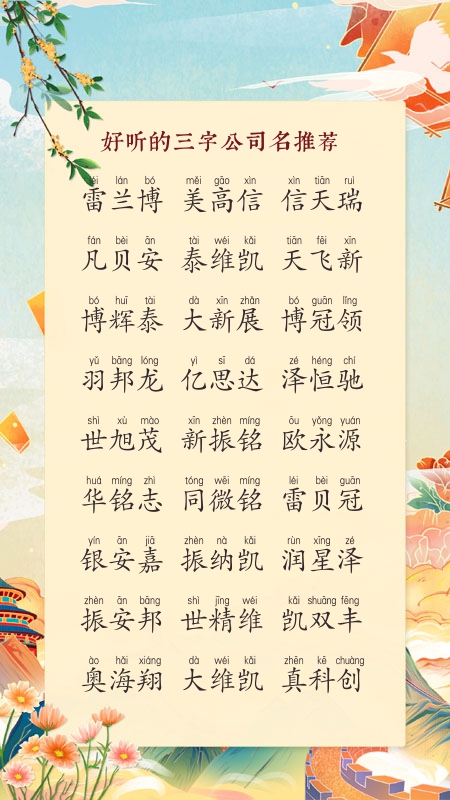 好听的三字公司名推荐
léi lán bó měi gāo xìn xìn tiān ruì
雷兰博 美高信 信天瑞
fán bèi ān tài wéi kǎi tiān fēi xīn
凡贝安 泰维凯 天飞新
bó huī tài dà xīn zhǎn bó guān lǐng
博辉泰 大新展 博冠领
yǔ bāng lóng yì sī dá zé héng chí
羽邦龙 亿思达 泽恒驰
shì xù mào xīn zhèn míng ōu yǒng yuán
世旭茂 新振铭 欧永源
huá míng zhì tóng wēi míng léi bèi guān
华铭志 同微铭 雷贝冠
yín ān jiā zhèn nà kǎi rùn xīng zé
银安嘉 振纳凯 润星泽
zhèn ān bāng shì jīng wéi kǎi shuāng fēng
振安邦 世精维 凯双丰
ào hǎi xiáng dà wéi kǎi zhēn kē chuàng
奥海翔 大维凯 真科创